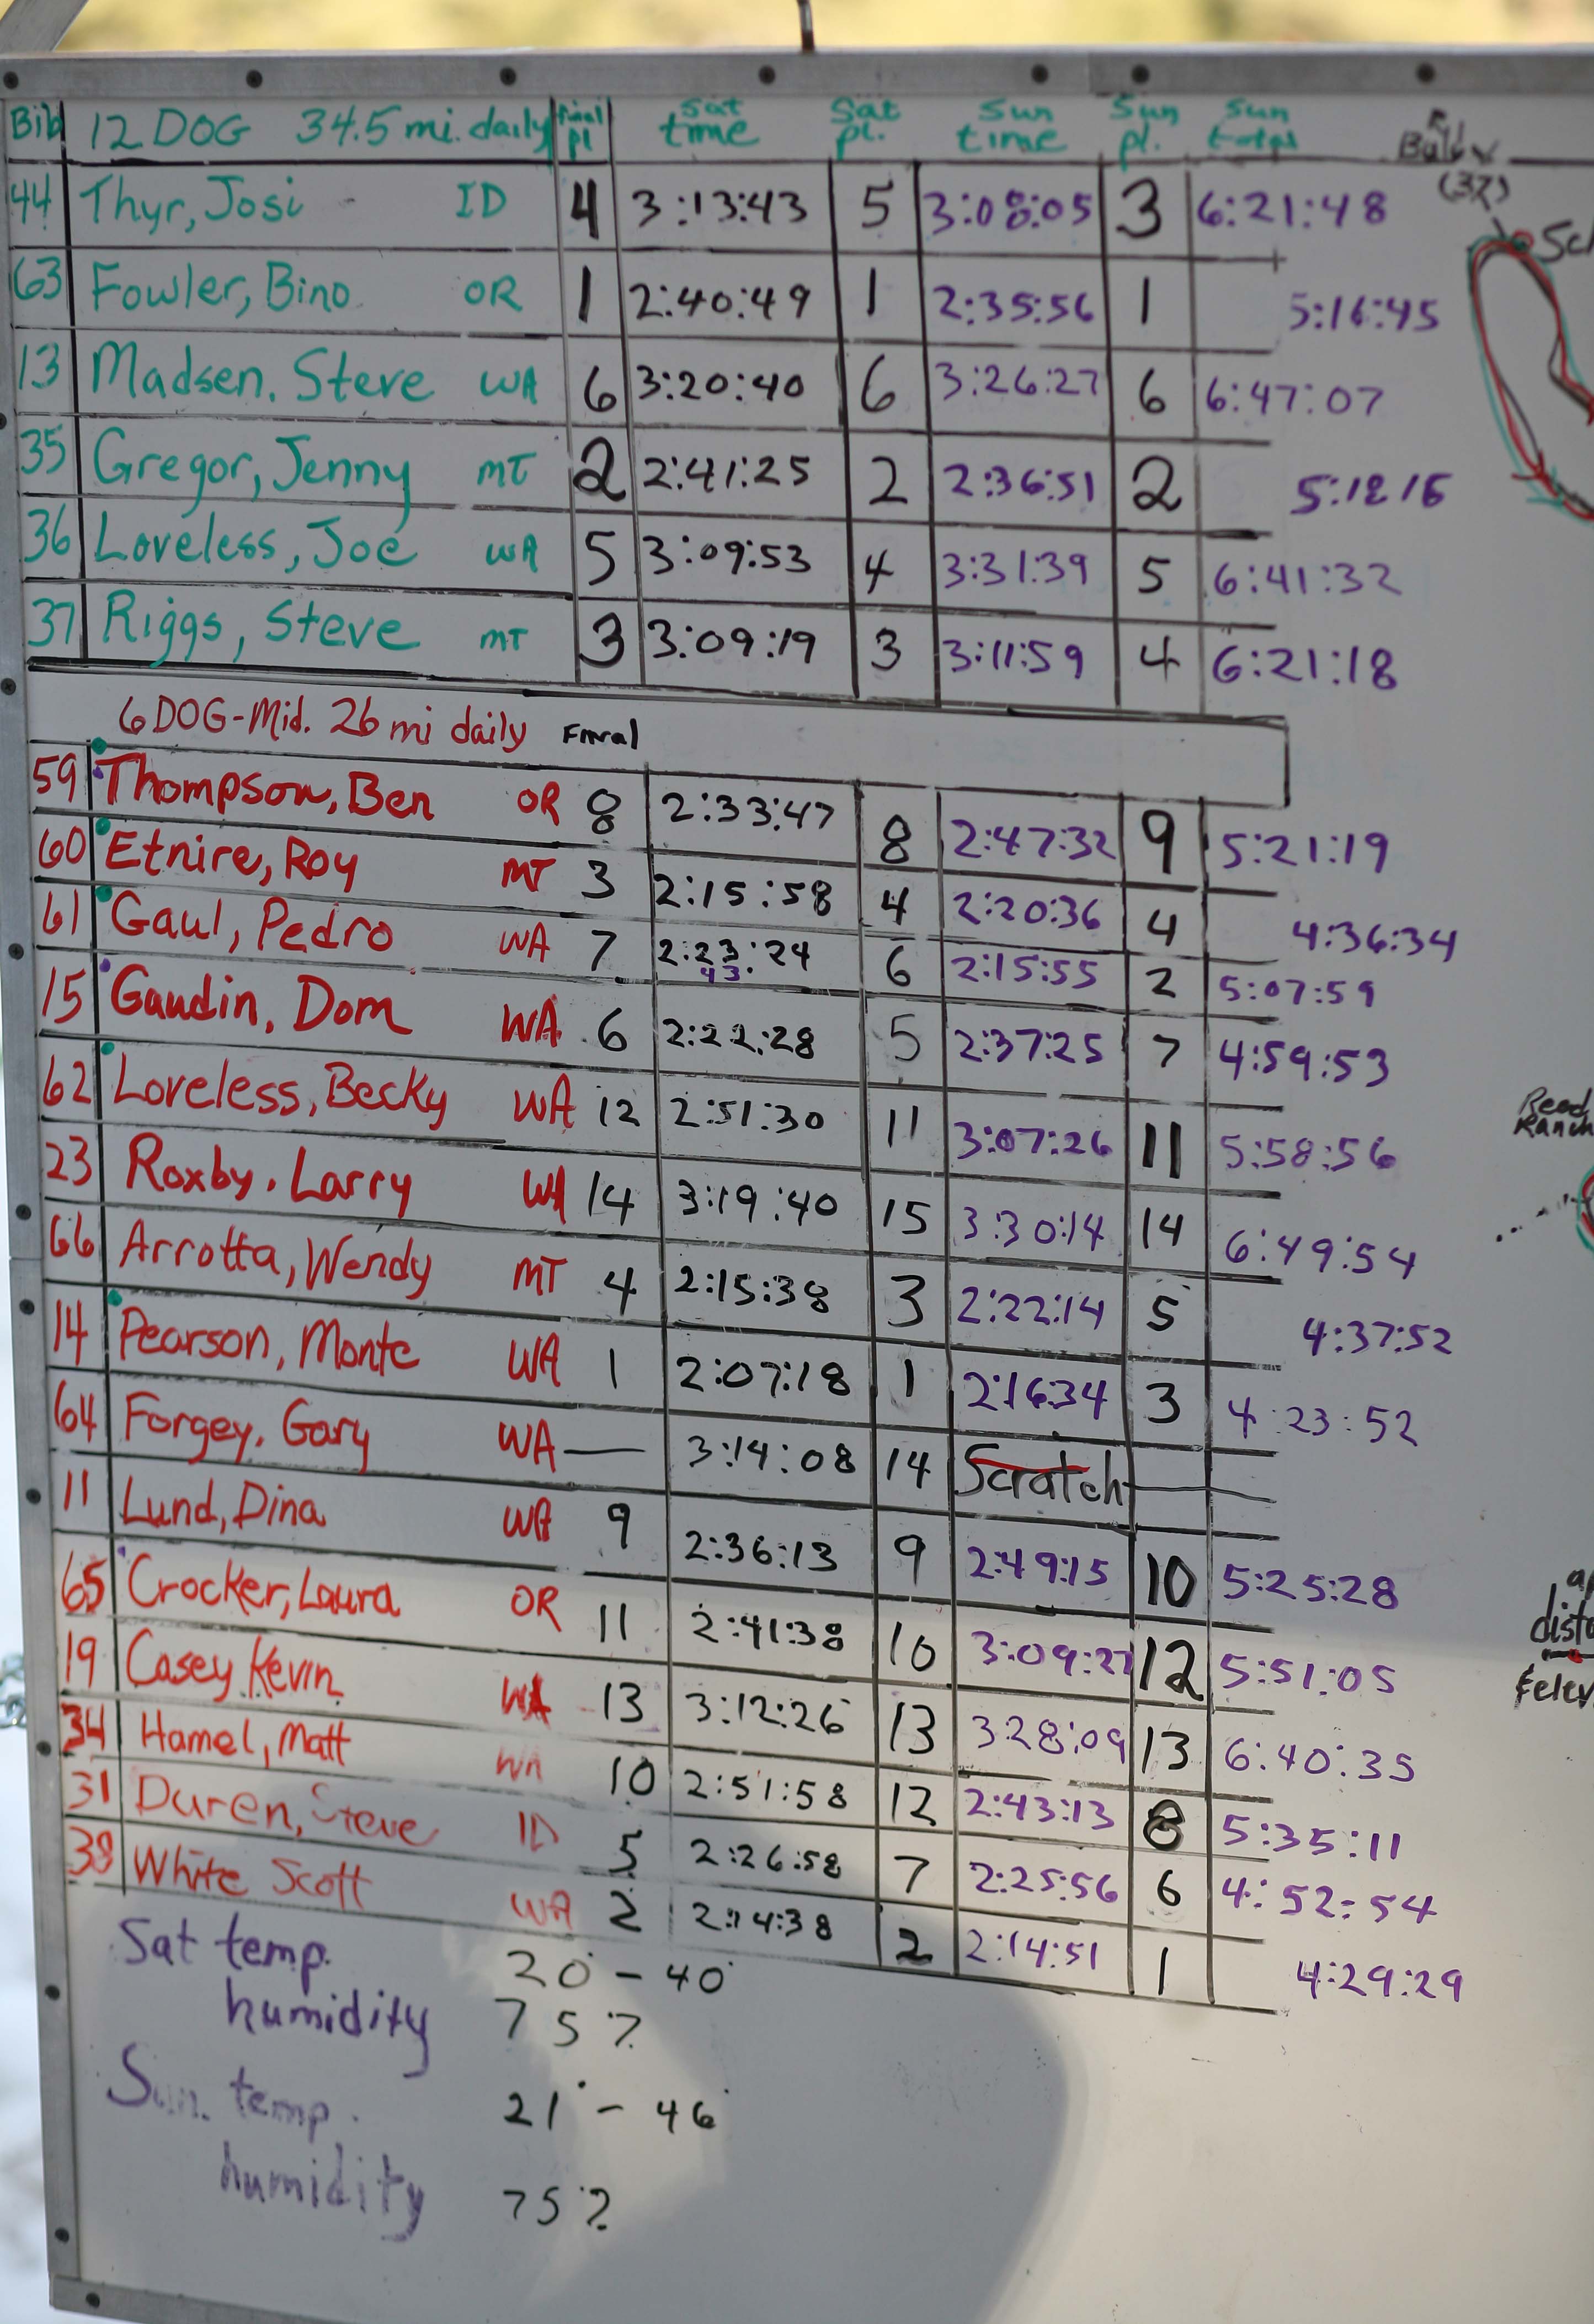 Bib 12 DOG 34.5 mi. daily Final pl Sat time Sat pl. Sun time Sun pl. Sun total
44 Thyr, Josi ID 4 3:13:43 5 3:08:05 3 6:21:48
63 Fowler, Bino OR 1 2:40:49 1 2:35:56 1 5:16:45
13 Madsen. Steve WA 6 3:20:40 6 3:26:27 6 6:47:07
35 Gregor, Jenny MT 2 2:41:25 2 2:36:51 2 5:18 16
36 Loveless, Joe WA 5 3:09:53 4 3:31:39 5 6:41:32
37 Riggs, Steve MT 3 3:09:19 3 3:11:59 4 6:21:18
6 DOG-Mid. 26 mi daily Final
59 Thompson, Ben OR 8 2:33:47 8 2:47:32 9 5:21:19
60 Etnire, Roy MT 3 2:15:58 4 2:20:36 4 4:36:34
61 Gaul, Pedro WA 7 2:23:24 6 2:15:55 2 5:07:59
43
15 Gaudin, Dom WA 6 2:22:28 5 2:37:25 7 4:59:53
62 Loveless, Becky WA 12 2:51:30 11 3:07:26 11 5:58:56
23 Roxby, Larry WA 14 3:19:40 15 3:30:14 14 6:49:54
66 Arrotta, Wendy MT 4 2:15:38 3 2:22:14 5 4:37:52
14 Pearson, Monte WA 1 2:07:18 1 2:16:34 3 4:23:52
64 Forgey, Gary WA — 3:14:08 14 Scratch
11 Lund, Dina WA 9 2:36:13 9 2:49:15 10 5:25:28
65 Crocker, Laura OR 11 2:41:38 10 3:09:27 12 5:51:05
19 Casey Kevin WA 13 3:12:26 13 3:28:09 13 6:40:35
34 Hamel, Matt WA 10 2:51:58 12 2:43:13 8 5:35:11
31 Duren, Steve ID 5 2:26:58 7 2:25:56 6 4:52:54
38 White Scott WA 2 2:14:38 2 2:14:51 1 4:29:29
Sat temp. 20° - 40°
humidity 75%
Sun. temp. 21° - 46°
humidity 75%
(37)
Reed
Ranch